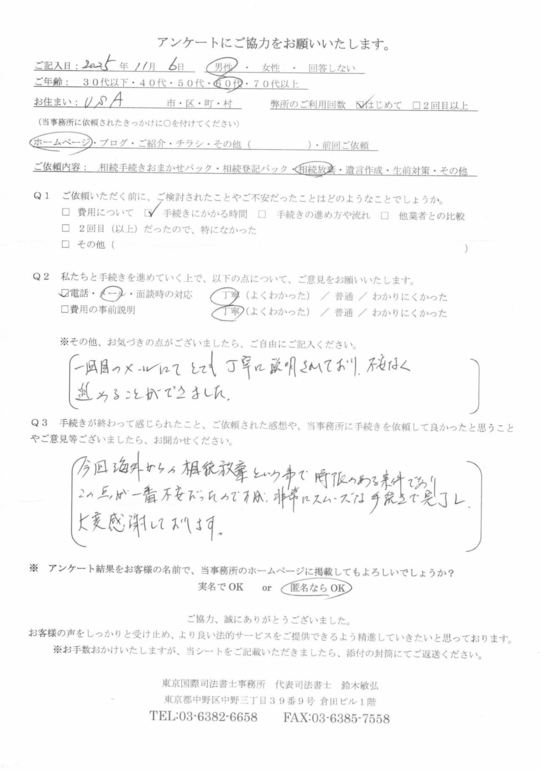 アンケートにご協力をお願いいたします。
ご記入日：2025年 11月 6日 男性 ・ 女性 ・ 回答しない
ご年齢： 30代以下・40代・50代・60代・70代以上
お住まい：USA 市・区・町・村 弊所のご利用回数 ☑はじめて □2回目以上
(当事務所に依頼されたきっかけに○を付けてください)
ホームページ・ブログ・ご紹介・チラシ・その他（ ）・前回ご依頼
ご依頼内容： 相続手続きおまかせパック・相続登記パック・相続放棄・遺言作成・生前対策・その他
Q1 ご依頼いただく前に、ご検討されたことやご不安だったことはどのようなことでしょうか。
□ 費用について ☑ 手続きにかかる時間 □ 手続きの進め方や流れ □ 他業者との比較
□ 2回目（以上）だったので、特になかった
□ その他（ ）
Q2 私たちと手続きを進めていく上で、以下の点について、ご意見をお願いいたします。
☑電話・メール・面談時の対応 丁寧（よくわかった） ／ 普通 ／ わかりにくかった
□費用の事前説明 丁寧（よくわかった） ／ 普通 ／ わかりにくかった
※その他、お気づきの点がございましたら、ご自由にご記入ください。
一回目のメールにてとても丁寧に説明されており、不安なく
進めることができました。
Q3 手続きが終わって感じられたこと、ご依頼された感想や、当事務所に手続きを依頼して良かったと思うこと
やご意見等ございましたら、お聞かせください。
今回海外からの相続放棄という事で時限のある案件であり
この点が一番不安だったのですが、非常にスムーズな手続きで完了し、
大変感謝しております。
※ アンケート結果をお客様の名前で、当事務所のホームページに掲載してもよろしいでしょうか？
実名でOK or 匿名ならOK
ご協力、誠にありがとうございました。
お客様の声をしっかりと受け止め、より良い法的サービスをご提供できるよう精進していきたいと思っております。
※お手数おかけいたしますが、当シートをご記載いただきましたら、添付の封筒にてご返送ください。
東京国際司法書士事務所 代表司法書士 鈴木敏弘
東京都中野区中野三丁目39番9号 倉田ビル1階
TEL:03-6382-6658 FAX:03-6385-7558